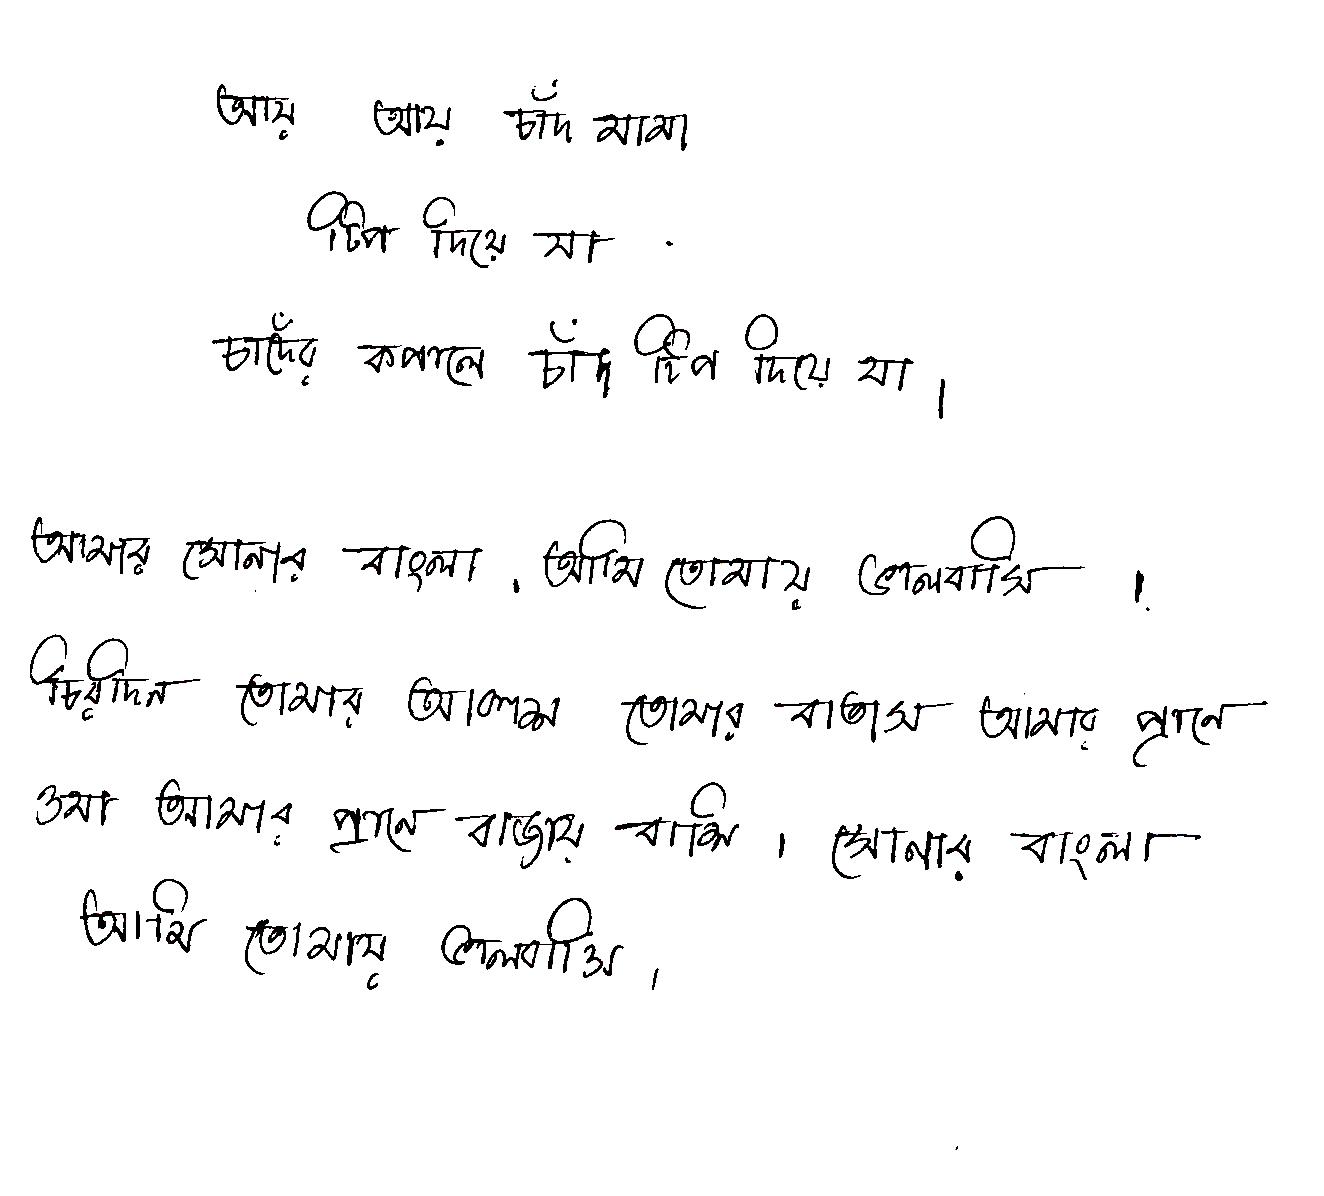 আয় আয় চাঁদ মামা
টিপ দিয়ে যা
চাদেঁর কপালে চাঁদ টিপ দিয়ে যা।
আমার সোনার বাংলা, আমি তোমায় ভালবাসি ।
চিরদিন তোমার আকাশ তোমার বাতাস আমার প্রানে
ওমা আমার প্রানে বাজায় বাশি । সোনার বাংলা
আমি তোমায় ভালবাসি ।